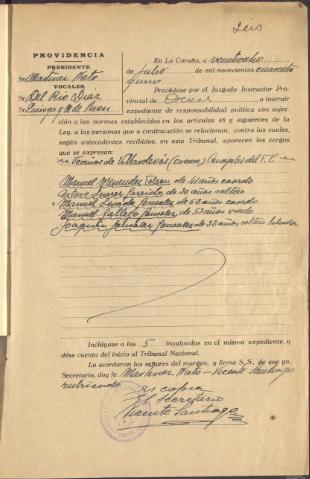 Seis
PROVIDENCIA
PRESIDENTE
Sr. Martinez Nieto
VOCALES
Sr. Del Rio Diaz
Sr. Quiroga y M. de Pison
En La Coruña, a veintiocho
de Julio de mil novecientos cuarenta
y uno
Procédase por el Juzgado Instructor Pro-
vincial de Orense a instruir
expediente de responsabilidad política con suje-
ción a las normas establecidas en los artículos 45 y siguientes de la
Ley, a las personas que a continuación se relacionan, contra las cuales,
según antecedentes recibidos, en este Tribunal, aparecen los cargos
que se expresan:
Vecinos de Villardevós (Orense) Concejales del F.P.
Manuel Menendez de 41 años casado
Suarez Garrido de 30 años soltero
Manuel Gonzalez de 53 años casado
Manuel Gallego Gonzalez de 53 años viudo
Joaquin Gonzalez de 33 años soltero labrador
Inclúyase a los 5 inculpados en el mismo expediente, y
dése cuenta del inicio al Tribunal Nacional.
Lo acordaron los señores del margen, y firma S. S., de que yo,
Secretario, doy fe. Martinez Nieto - Vicente Santiago
rubricado
Es copia
El Secretario
Vicente Santiago